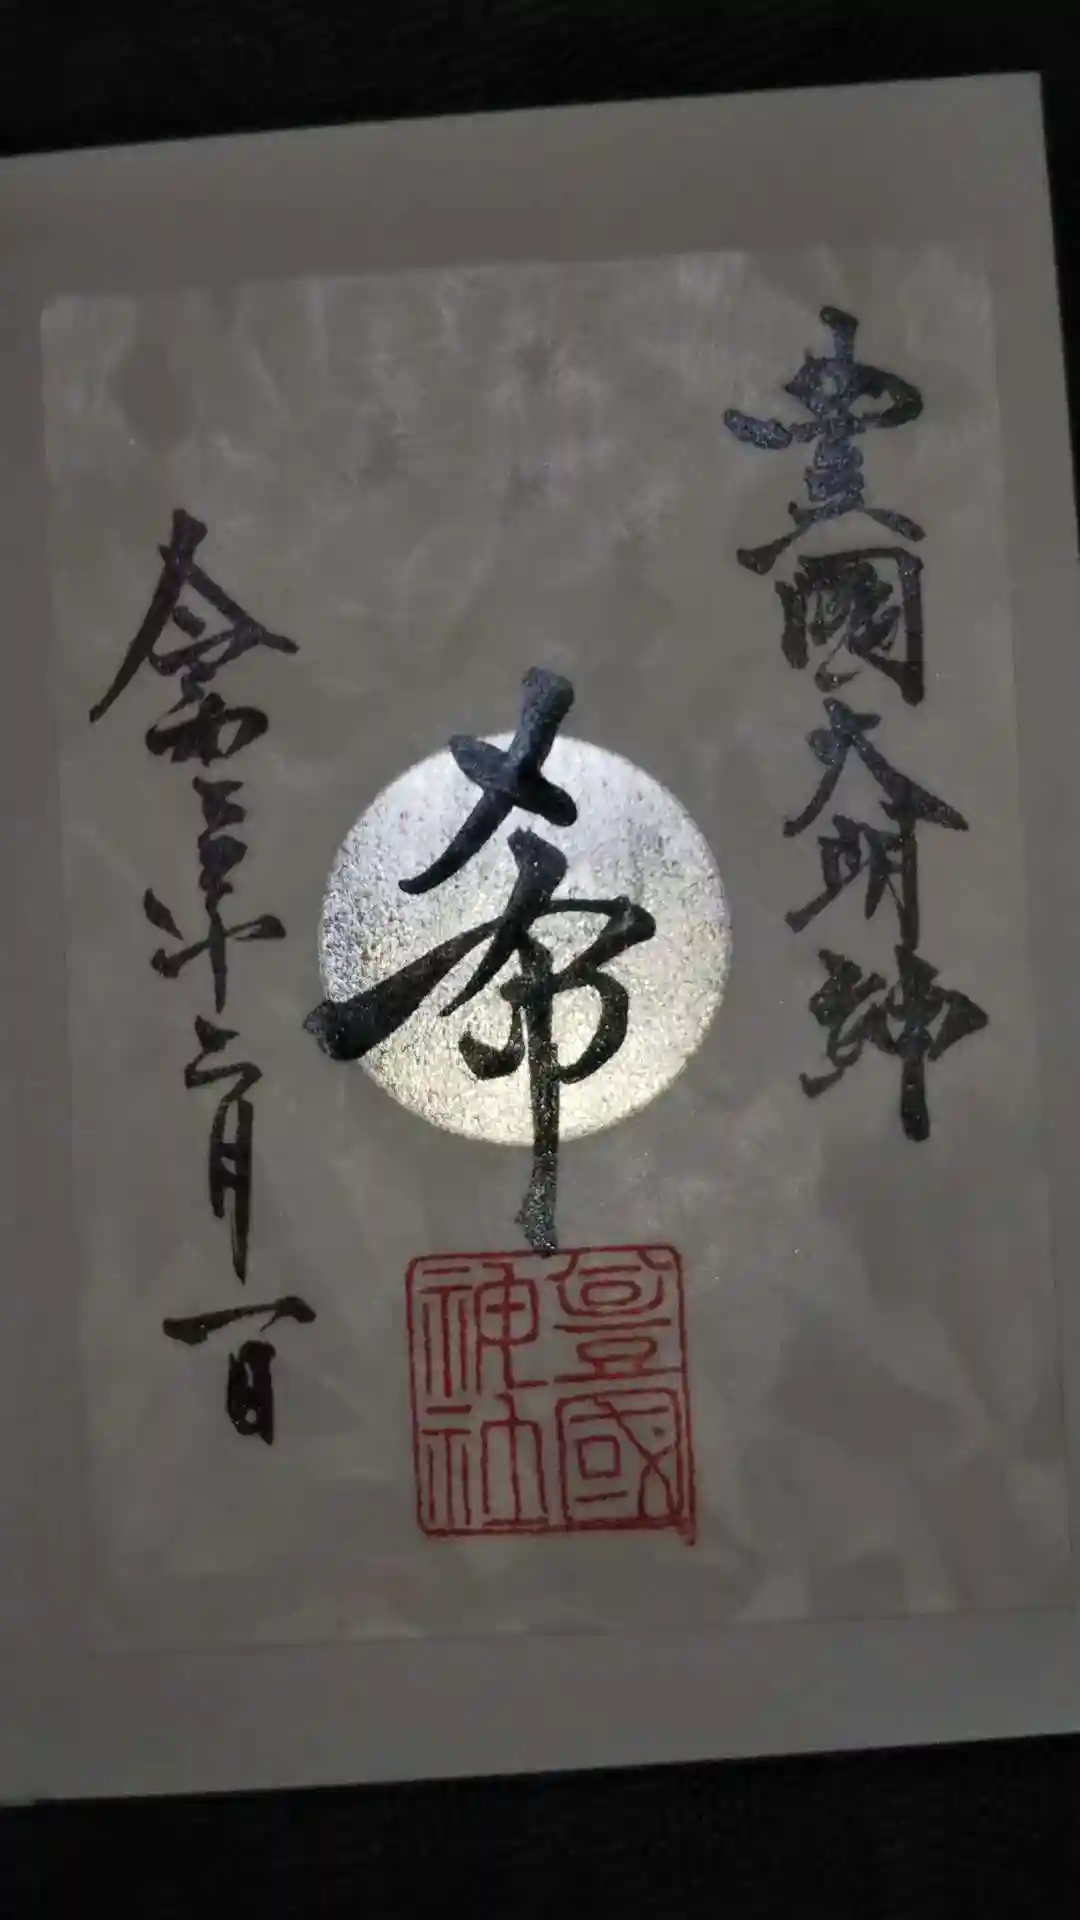 豊國大明神
希
令和三年二月一日
豊國
神社